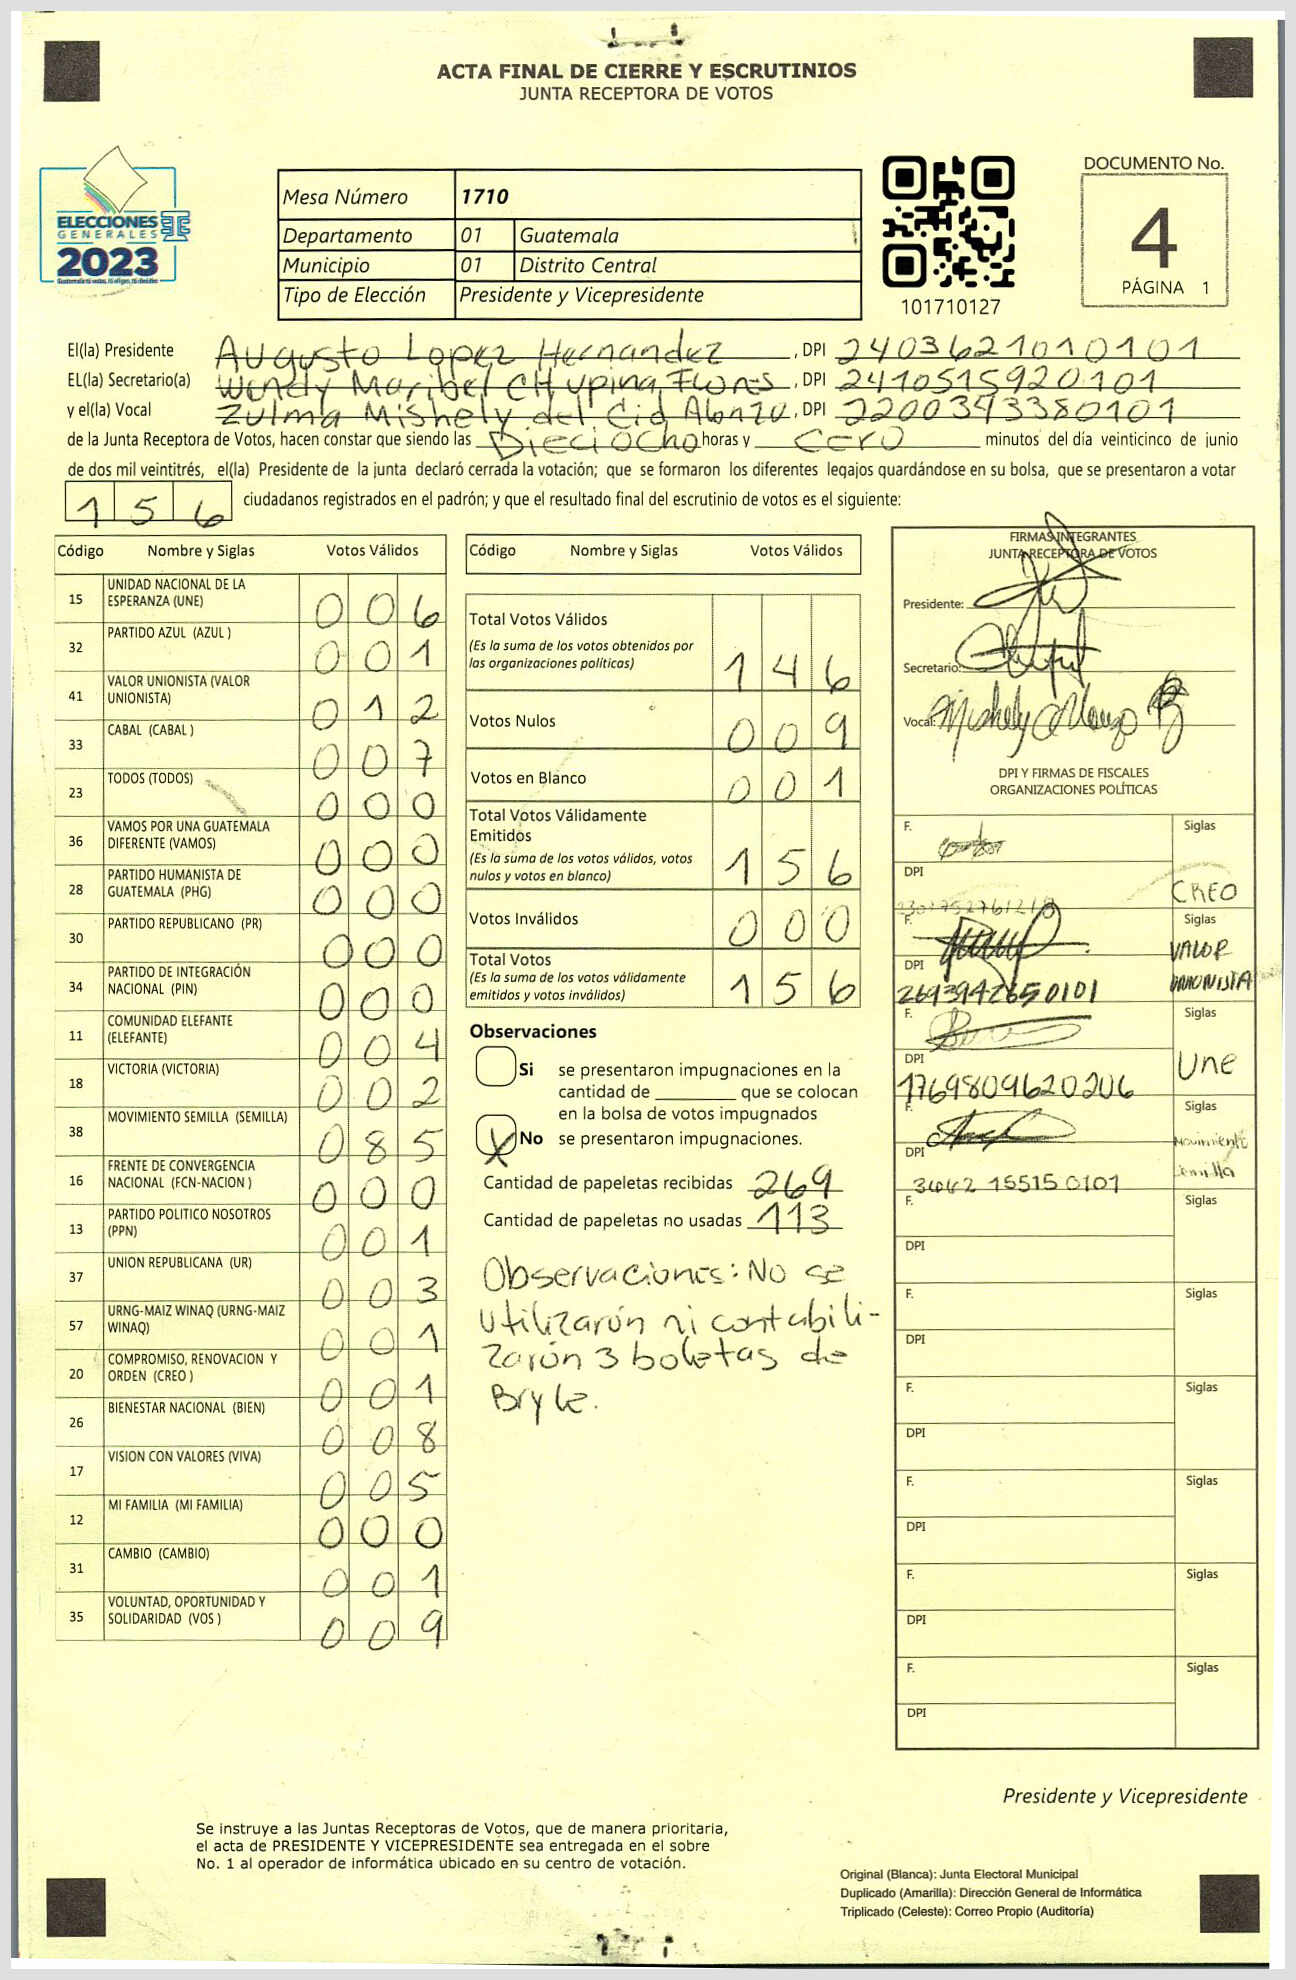 ACTA FINAL DE CIERRE Y ESCRUTINIOS
JUNTA RECEPTORA DE VOTOS
ELECCIONES
GENERALES
2023
Mesa Número 1710
Departamento 01 Guatemala
Municipio 01 Distrito Central
Tipo de Elección Presidente y Vicepresidente
101710127
DOCUMENTO No.
4
PÁGINA 1
El(la) Presidente Augusto Lopez Hernandez, DPI 2403621010101
EL(la) Secretario(a) Wendy Maribel CHupina Flores, DPI 2410515920101
y el(la) Vocal Zulma Mishely del Cid Alonzo, DPI 2200393380101
de la Junta Receptora de Votos, hacen constar que siendo las Dieciocho horas y Cero minutos del día veinticinco de junio
de dos mil veintitrés, el(la) Presidente de la junta declaró cerrada la votación; que se formaron los diferentes legajos guardándose en su bolsa, que se presentaron a votar
156 ciudadanos registrados en el padrón; y que el resultado final del escrutinio de votos es el siguiente:
Código Nombre y Siglas Votos Válidos
15 UNIDAD NACIONAL DE LA ESPERANZA (UNE) 006
32 PARTIDO AZUL (AZUL ) 001
41 VALOR UNIONISTA (VALOR UNIONISTA) 012
33 CABAL (CABAL ) 007
23 TODOS (TODOS) 000
36 VAMOS POR UNA GUATEMALA DIFERENTE (VAMOS) 000
28 PARTIDO HUMANISTA DE GUATEMALA (PHG) 000
30 PARTIDO REPUBLICANO (PR) 000
34 PARTIDO DE INTEGRACIÓN NACIONAL (PIN) 000
11 COMUNIDAD ELEFANTE (ELEFANTE) 004
18 VICTORIA (VICTORIA) 002
38 MOVIMIENTO SEMILLA (SEMILLA) 085
16 FRENTE DE CONVERGENCIA NACIONAL (FCN-NACION ) 000
13 PARTIDO POLITICO NOSOTROS (PPN) 001
37 UNION REPUBLICANA (UR) 003
57 URNG-MAIZ WINAQ (URNG-MAIZ WINAQ) 001
20 COMPROMISO, RENOVACION Y ORDEN (CREO ) 001
26 BIENESTAR NACIONAL (BIEN) 008
17 VISION CON VALORES (VIVA) 005
12 MI FAMILIA (MI FAMILIA) 000
31 CAMBIO (CAMBIO) 001
35 VOLUNTAD, OPORTUNIDAD Y SOLIDARIDAD (VOS ) 009
Código Nombre y Siglas Votos Válidos
Total Votos Válidos 146
(Es la suma de los votos obtenidos por
las organizaciones políticas)
Votos Nulos 009
Votos en Blanco 001
Total Votos Válidamente
Emitidos 156
(Es la suma de los votos válidos, votos
nulos y votos en blanco)
Votos Inválidos 000
Total Votos 156
(Es la suma de los votos válidamente
emitidos y votos inválidos)
Observaciones
Si se presentaron impugnaciones en la
cantidad de ________ que se colocan
en la bolsa de votos impugnados
X No se presentaron impugnaciones.
Cantidad de papeletas recibidas 269
Cantidad de papeletas no usadas 113
Observaciones: No se
utilizarón ni contabili-
zarón 3 boletas de
Bryle.
FIRMAS INTEGRANTES
JUNTA RECEPTORA DE VOTOS
Presidente:
Secretario:
Vocal:
DPI Y FIRMAS DE FISCALES
ORGANIZACIONES POLÍTICAS
F. Siglas
DPI CREO
F. Siglas
DPI VALOR UNIONISTA
2693942650101
F. Siglas
DPI Une
1769809620206
F. Siglas
DPI Movimiento Semilla
3642 15515 0101
F. Siglas
DPI
F. Siglas
DPI
F. Siglas
DPI
F. Siglas
DPI
F. Siglas
DPI
F. Siglas
DPI
Presidente y Vicepresidente
Se instruye a las Juntas Receptoras de Votos, que de manera prioritaria,
el acta de PRESIDENTE Y VICEPRESIDENTE sea entregada en el sobre
No. 1 al operador de informática ubicado en su centro de votación.
Original (Blanca): Junta Electoral Municipal
Duplicado (Amarilla): Dirección General de Informática
Triplicado (Celeste): Correo Propio (Auditoría)